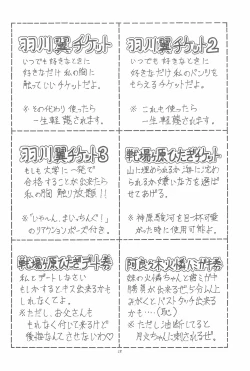 羽川翼チケット
いつでも好きなときに
好きなだけ 私の胸に
触っていいチケットだよ。
※ その代わり 使ったら
一生 軽蔑されます。
羽川翼チケット2
いつでも 好きなときに
好きなだけ 私のパンツを
もらえるチケットだよ。
※ これも 使ったら
一生 軽蔑されます。
羽川翼チケット3
もしも 大学に一発で
合格することが出来たら
私の胸 触り放題!!
※「いゃ〜ん、まいっちんぐ!」
のリアクションポーズ付き。
戦場ヶ原ひたぎチケット
山に埋められるか海に沈め
られるか嫌いな方を選ば
せてあげる。
※ 神原駿河も
った時に使用可能よ。
戦場ヶ原ひたぎデート券
私とデートしなさい
もしかするとキス出来るかも
しれなくてよ。
※ただし、お父さんも
もれなく付いて来るけど
後悔なんてさせないわ♡
阿良々木火憐ハミガキ券
妹の火憐ちゃんと歯ミガキ
勝負が出来るゼ!
みがくとバストタッチ出来る
かも…(恥)
※ただし、油断してると
月火ちゃんに刺されるぜ。